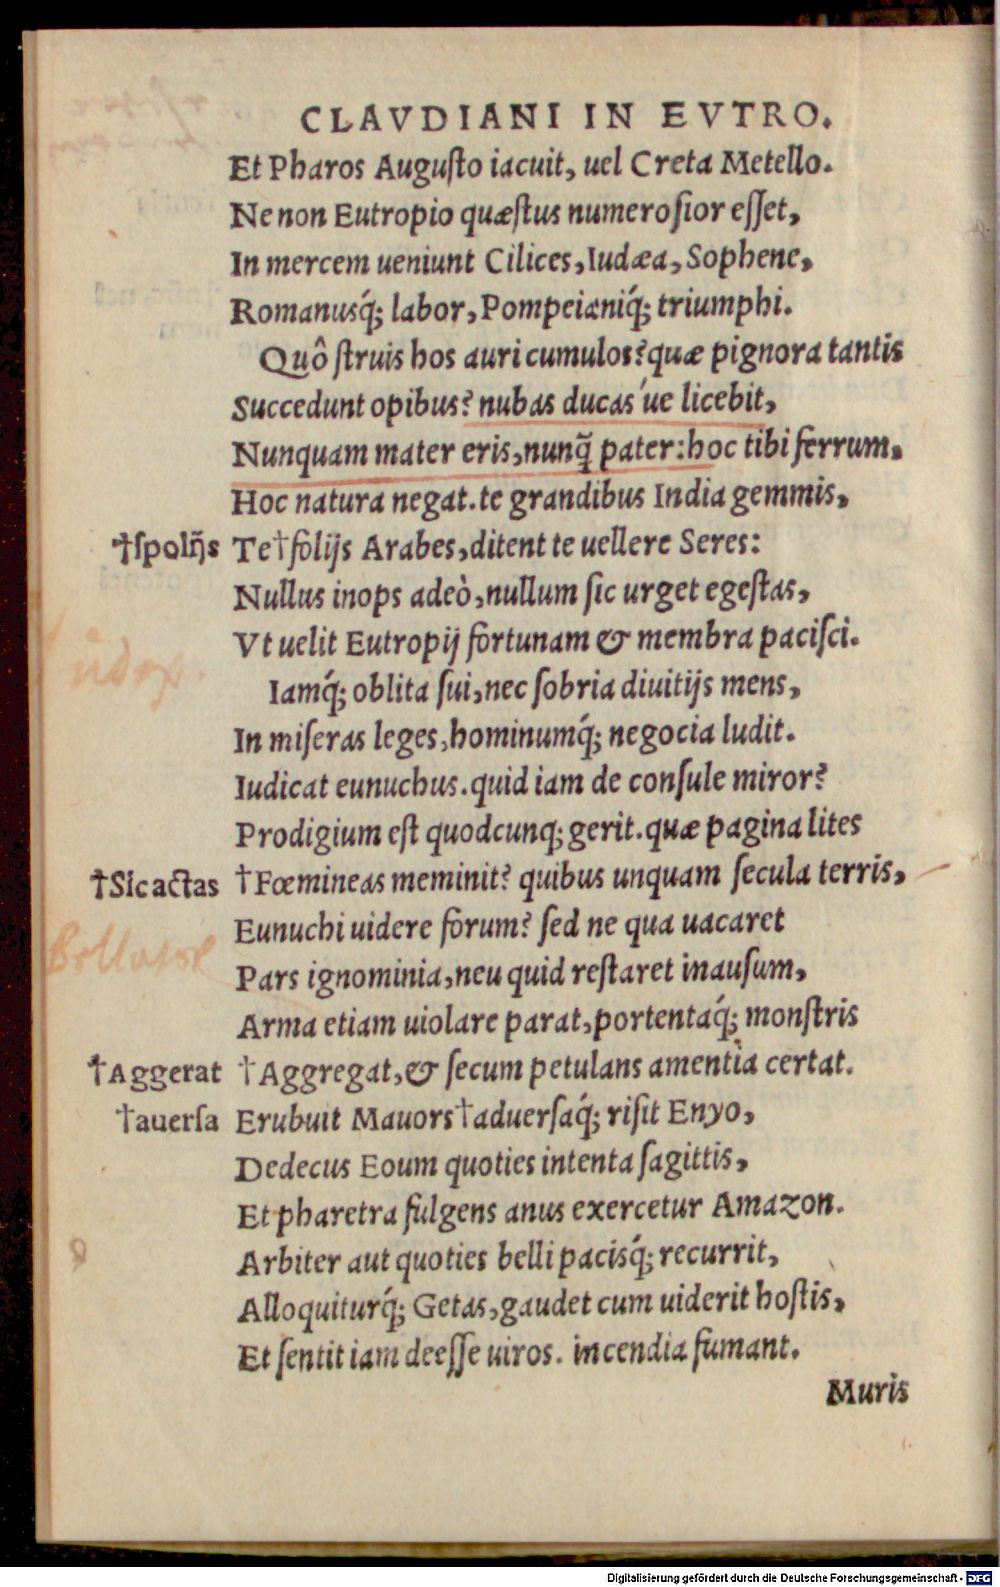 CLAVDIANI IN EVTRO.
Et Pharos Augusto iacuit, uel Creta Metello.
Ne non Eutropio quæstus numerosior esset,
In mercem ueniunt Cilices, Iudæa, Sophene,
Romanusq́; labor, Pompeianiq́; triumphi.
Quô struis hos auri cumulos? quæ pignora tantis
Succedunt opibus? nubas ducas´ue licebit,
Nunquam mater eris, nunq̃ pater: hoc tibi ferrum.
Hoc natura negat. te grandibus India gemmis,
†spolijs Te †folijs Arabes, ditent te uellere Seres:
Nullus inops adeò, nullum sic urget egestas,
Vt uelit Eutropij fortunam & membra pacisci.
Index.
Iamq́; oblita sui, nec sobria diuitijs mens,
In miseras leges, hominumq́; negocia ludit.
Iudicat eunuchus. quid iam de consule miror?
Prodigium est quodcunq; gerit. quæ pagina lites
†Sic actas †Fœmineas meminit? quibus unquam secula terris,
Eunuchi uidere forum? sed ne qua uacaret
Pars ignominia, neu quid restaret inausum,
Arma etiam uiolare parat, portentaq́; monstris
†Aggerat †Aggregat, & secum petulans amentia certat.
†auersa Erubuit Mauors †aduersaq́; risit Enyo,
Dedecus Eoum quoties intenta sagittis,
Et pharetra fulgens anus exercetur Amazon.
Arbiter aut quoties belli pacisq́; recurrit,
Alloquiturq́; Getas, gaudet cum uiderit hostis,
Et sentit iam deesse uiros. incendia fumant.
Muris
Digitalisierung gefördert durch die Deutsche Forschungsgemeinschaft - DFG